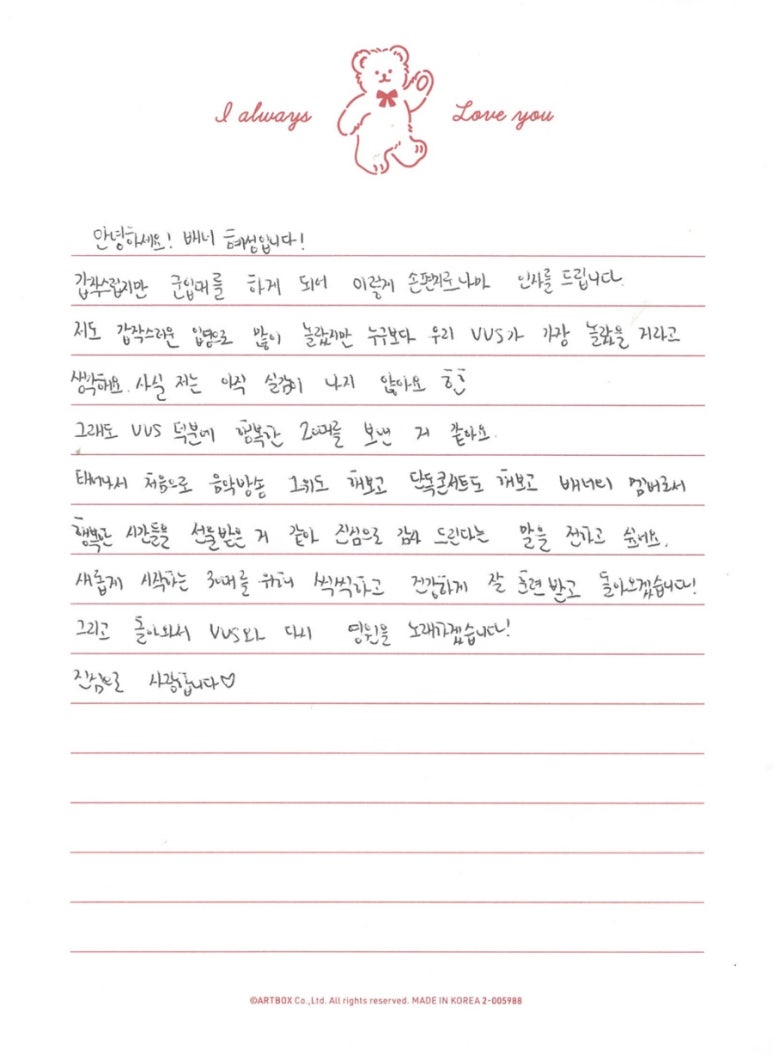 I always Love you
안녕하세요! 배너 혜성입니다!
갑작스럽지만 군입대를 하게 되어 이렇게 손편지로나마 인사를 드립니다.
저도 갑작스러운 입영으로 많이 놀랐지만 누구보다 우리 VVS가 가장 놀랐을 거라고
생각해요. 사실 저는 아직 실감이 나지 않아요 핫
그래도 VVS 덕분에 행복한 20대를 보낸 거 같아요.
태어나서 처음으로 음악방송 1위도 해보고 단독콘서트도 해보고 배너의 멤버로서
행복한 시간들을 선물받은 거 같아 진심으로 감사 드린다는 말을 전하고 싶네요.
새롭게 시작하는 30대를 위해 씩씩하고 건강하게 잘 훈련받고 돌아오겠습니다!
그리고 돌아와서 VVS와 다시 영원을 노래하겠습니다!
진심으로 사랑합니다♡
©ARTBOX Co.,Ltd. All rights reserved. MADE IN KOREA 2-005988